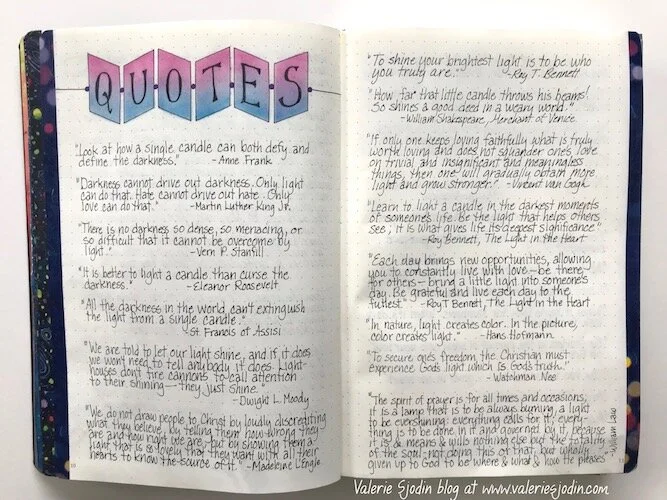 QUOTES
"Look at how a single candle can both defy and
define the darkness." -Anne Frank
"Darkness cannot drive out darkness. Only light
can do that. Hate cannot drive out hate. Only
love can do that." -Martin Luther King Jr.
"There is no darkness so dense, so menacing, or
so difficult that it cannot be overcome by
light." -Vern P. Stanfill
"It is better to light a candle than curse the
darkness." -Eleanor Roosevelt
"All the darkness in the world can't extinguish
the light from a single candle."
St Francis of Assisi
"We are told to let our light shine, and if it does,
we won't need to tell anybody it does. Light-
houses don't fire cannons to call attention
to their shining - They just shine."
-Dwight L. Moody
"We do not draw people to Christ by loudly discrediting
what they believe, by telling them how wrong they
are and how right we are, but by showing them a
light that is so lovely that they want with all their
hearts to know the source of it." -Madeleine L'Engle
10
"To shine your brightest light is to be who
you truly are." -Roy T. Bennett
"How far that little candle throws his beams!
So shines a good deed in a weary world."
-William Shakespeare, Merchant of Venice
"If only one keeps loving faithfully what is truly
worth loving and does not squander one's love
on trivial and insignificant and meaningless
things, then one will gradually obtain more
light and grow stronger." -Vincent Van Gogh
"Learn to light a candle in the darkest moments
of someone's life. Be the light that helps others
see; it is what gives life its deepest significance."
-Roy Bennett, The Light in the Heart
"Each day brings new opportunities, allowing
you to constantly live with love-be there
for others-bring a little light into someone's
day. Be grateful and live each day to the
fullest." -Roy T Bennett, The Light in the Heart
"In nature, light creates color. In the picture,
color creates light." -Hans Hofmann
"To secure one's freedom the Christian must
experience God's light which is God's truth."
-Watchman Nee
"The spirit of prayer is for all times and occasions,
it is a lamp that is to be always burning, a light
to be evershining: everything calls for it; every-
thing is to be done in it and governed by it, because
it is & means & wills nothing else but the totality
of the soul-not doing this or that, but wholly
given up to God to be where & what & how He pleases."
-William Law
11
Valerie Sjodin blog at www.valeriesjodin.com